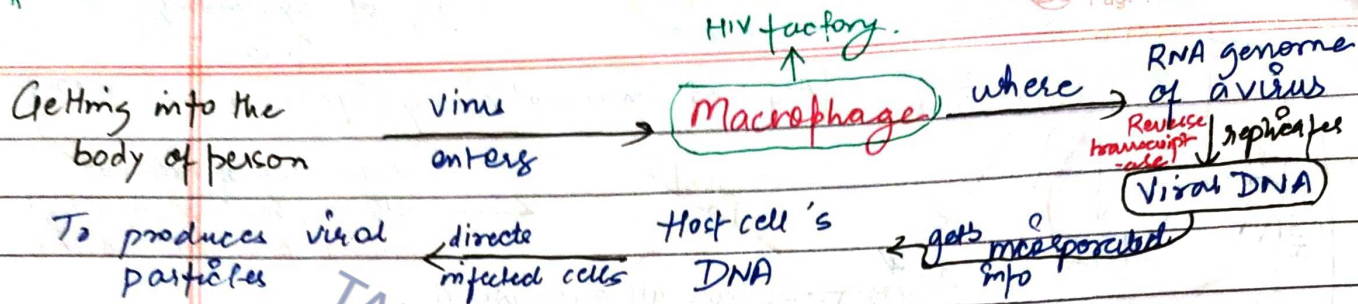 HIV factory.
Getting into the body of person
virus enters
Macrophage
where
RNA genome of a virus
Reverse transcript-ase
replicates
Viral DNA
gets incorporated into
Host cell's DNA
directe infected cells
To produces viral particles
TA